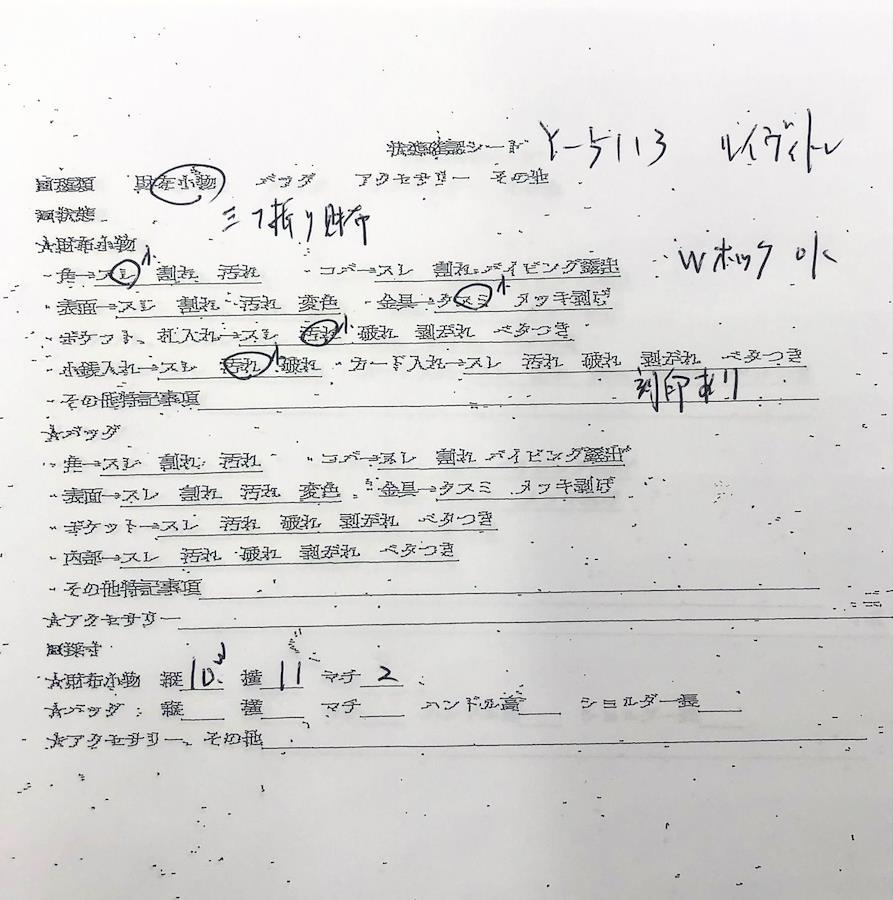 状態確認シート Y-5113 ルイヴィトン
■種類 財布小物 バッグ アクセサリー その他
■状態 三つ折り財布
★財布小物
・角→スレ小 割れ 汚れ ・コバ→スレ 割れ パイピング露出 Wホック OK
・表面→スレ 割れ 汚れ 変色 ・金具→クスミ小 メッキ剥げ
・ポケット、札入れ→スレ 汚れ小 破れ 剥がれ ベタつき
・小銭入れ→スレ 汚れ小 破れ ・カード入れ→スレ 汚れ 破れ 剥がれ ベタつき
・その他特記事項 刻印あり
★バッグ
・角→スレ 割れ 汚れ ・コバ→スレ 割れ パイピング露出
・表面→スレ 割れ 汚れ 変色 ・金具→クスミ メッキ剥げ
・ポケット→スレ 汚れ 破れ 剥がれ ベタつき
・内部→スレ 汚れ 破れ 剥がれ ベタつき
・その他特記事項
★アクセサリー
■採寸
★財布小物 縦 10. 横 11 マチ 2
★バッグ: 縦 横 マチ ハンドル高 ショルダー長
★アクセサリー、その他